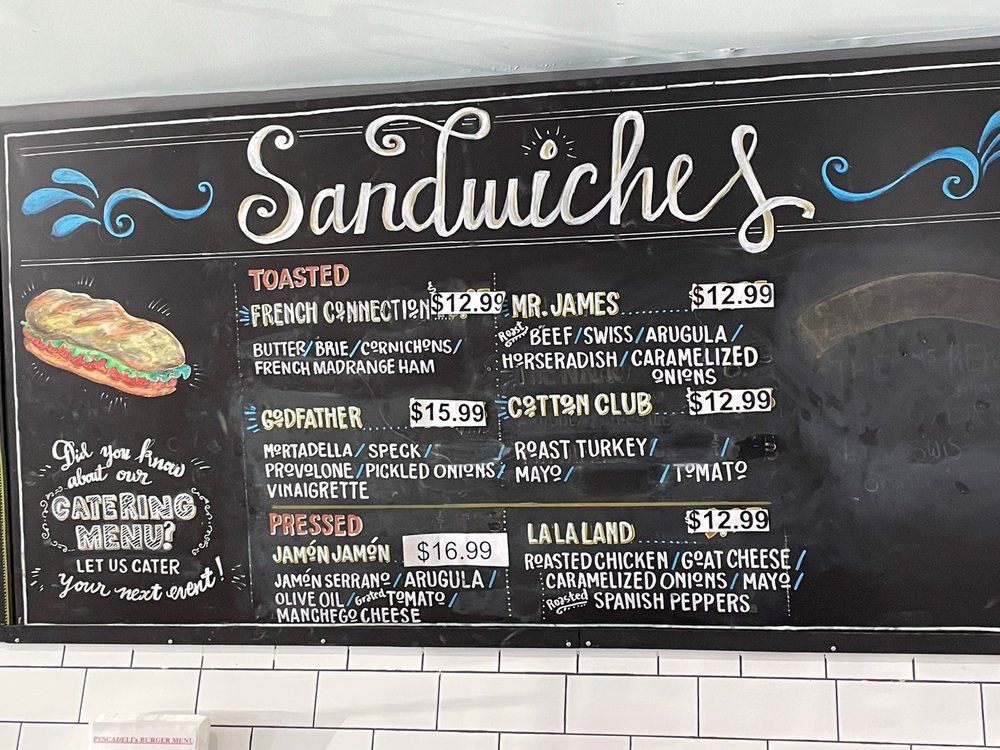 Sandwiches
TOASTED
FRENCH CONNECTION $12.99
BUTTER/BRIE/CORNICHONS/
FRENCH MADRANGE HAM
GODFATHER $15.99
MORTADELLA/SPECK/
PROVOLONE/PICKLED ONIONS/
VINAIGRETTE
MR. JAMES $12.99
Roast BEEF/SWISS/ARUGULA/
HORSERADISH/CARAMELIZED
ONIONS
COTTON CLUB $12.99
ROAST TURKEY/ /
MAYO/ /TOMATO
PRESSED
JAMÓN JAMÓN $16.99
JAMÓN SERRANO/ARUGULA/
OLIVE OIL/Grated TOMATO/
MANCHEGO CHEESE
LA LA LAND $12.99
ROASTED CHICKEN/GOAT CHEESE/
CARAMELIZED ONIONS/MAYO/
Roasted SPANISH PEPPERS
Did you know
about our
CATERING
MENU?
LET US CATER
your next event!
PESCADELI's BURGER MENU